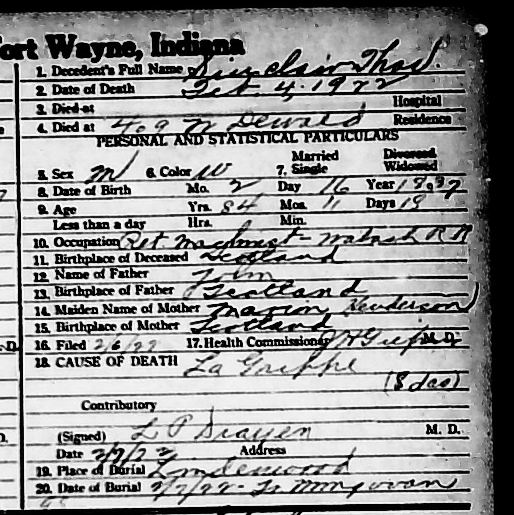 ort Wayne, Indiana
1. Decedent's Full Name Sinclair Thos.
2. Date of Death Feb 4, 1922
3. Died at Hospital
4. Died at 409 W Dewald Residence
PERSONAL AND STATISTICAL PARTICULARS
Married Divorced
5. Sex M 6. Color W 7. Single Widowed
8. Date of Birth Mo. 2 Day 16 Year 1837
9. Age Yrs. 84 Mos. 11 Days 19
Less than a day Hrs. Min.
10. Occupation Ret Machinist - Wabash R R
11. Birthplace of Deceased Scotland
12. Name of Father John
13. Birthplace of Father Scotland
14. Maiden Name of Mother Marion Henderson
15. Birthplace of Mother Scotland
16. Filed 2/6/22 17. Health Commissioner M. D.
18. CAUSE OF DEATH La Grippe
(8 das)
Contributory
(Signed) L P M. D.
Date Address
19. Place of Burial Lindenwood
20. Date of Burial 2/7/22 -